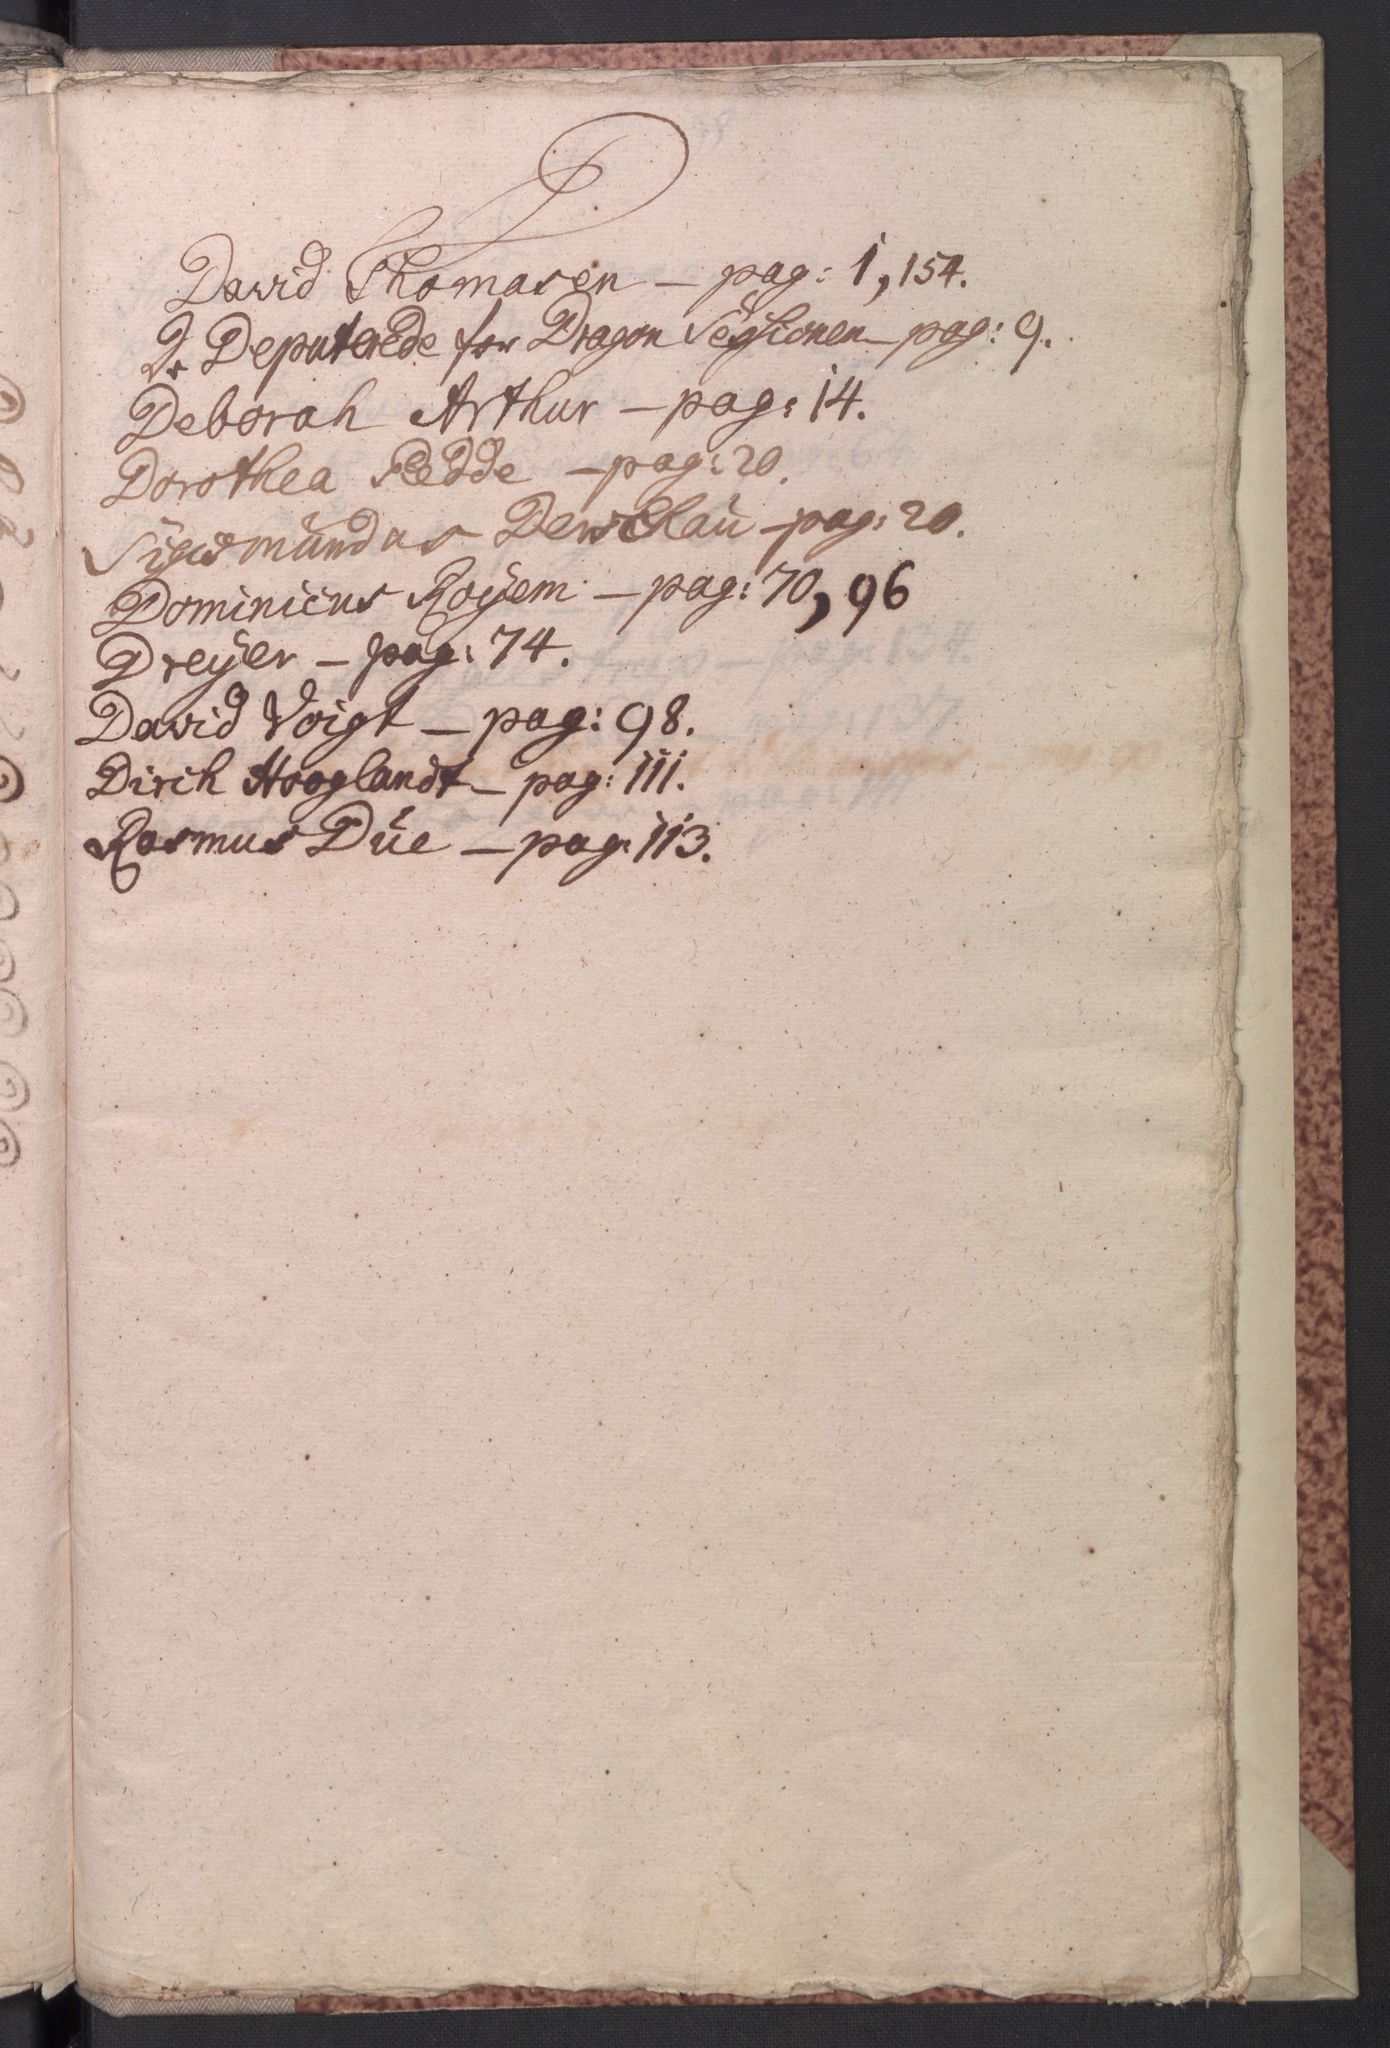 D
David Thomasen – pag: 1, 154.
De Deputerede for Dragon Seshionen – pag: 9.
Deborah Arthur – pag: 14.
Dorothea Fedde – pag: 20.
Sigismundus Denchlau – pag: 20.
Dominicus Royem – pag: 70, 96
Dreÿer – pag: 74.
David Voigt – pag: 98.
Dirch Hooglandt – pag: 111.
Rasmus Düe – pag: 113.